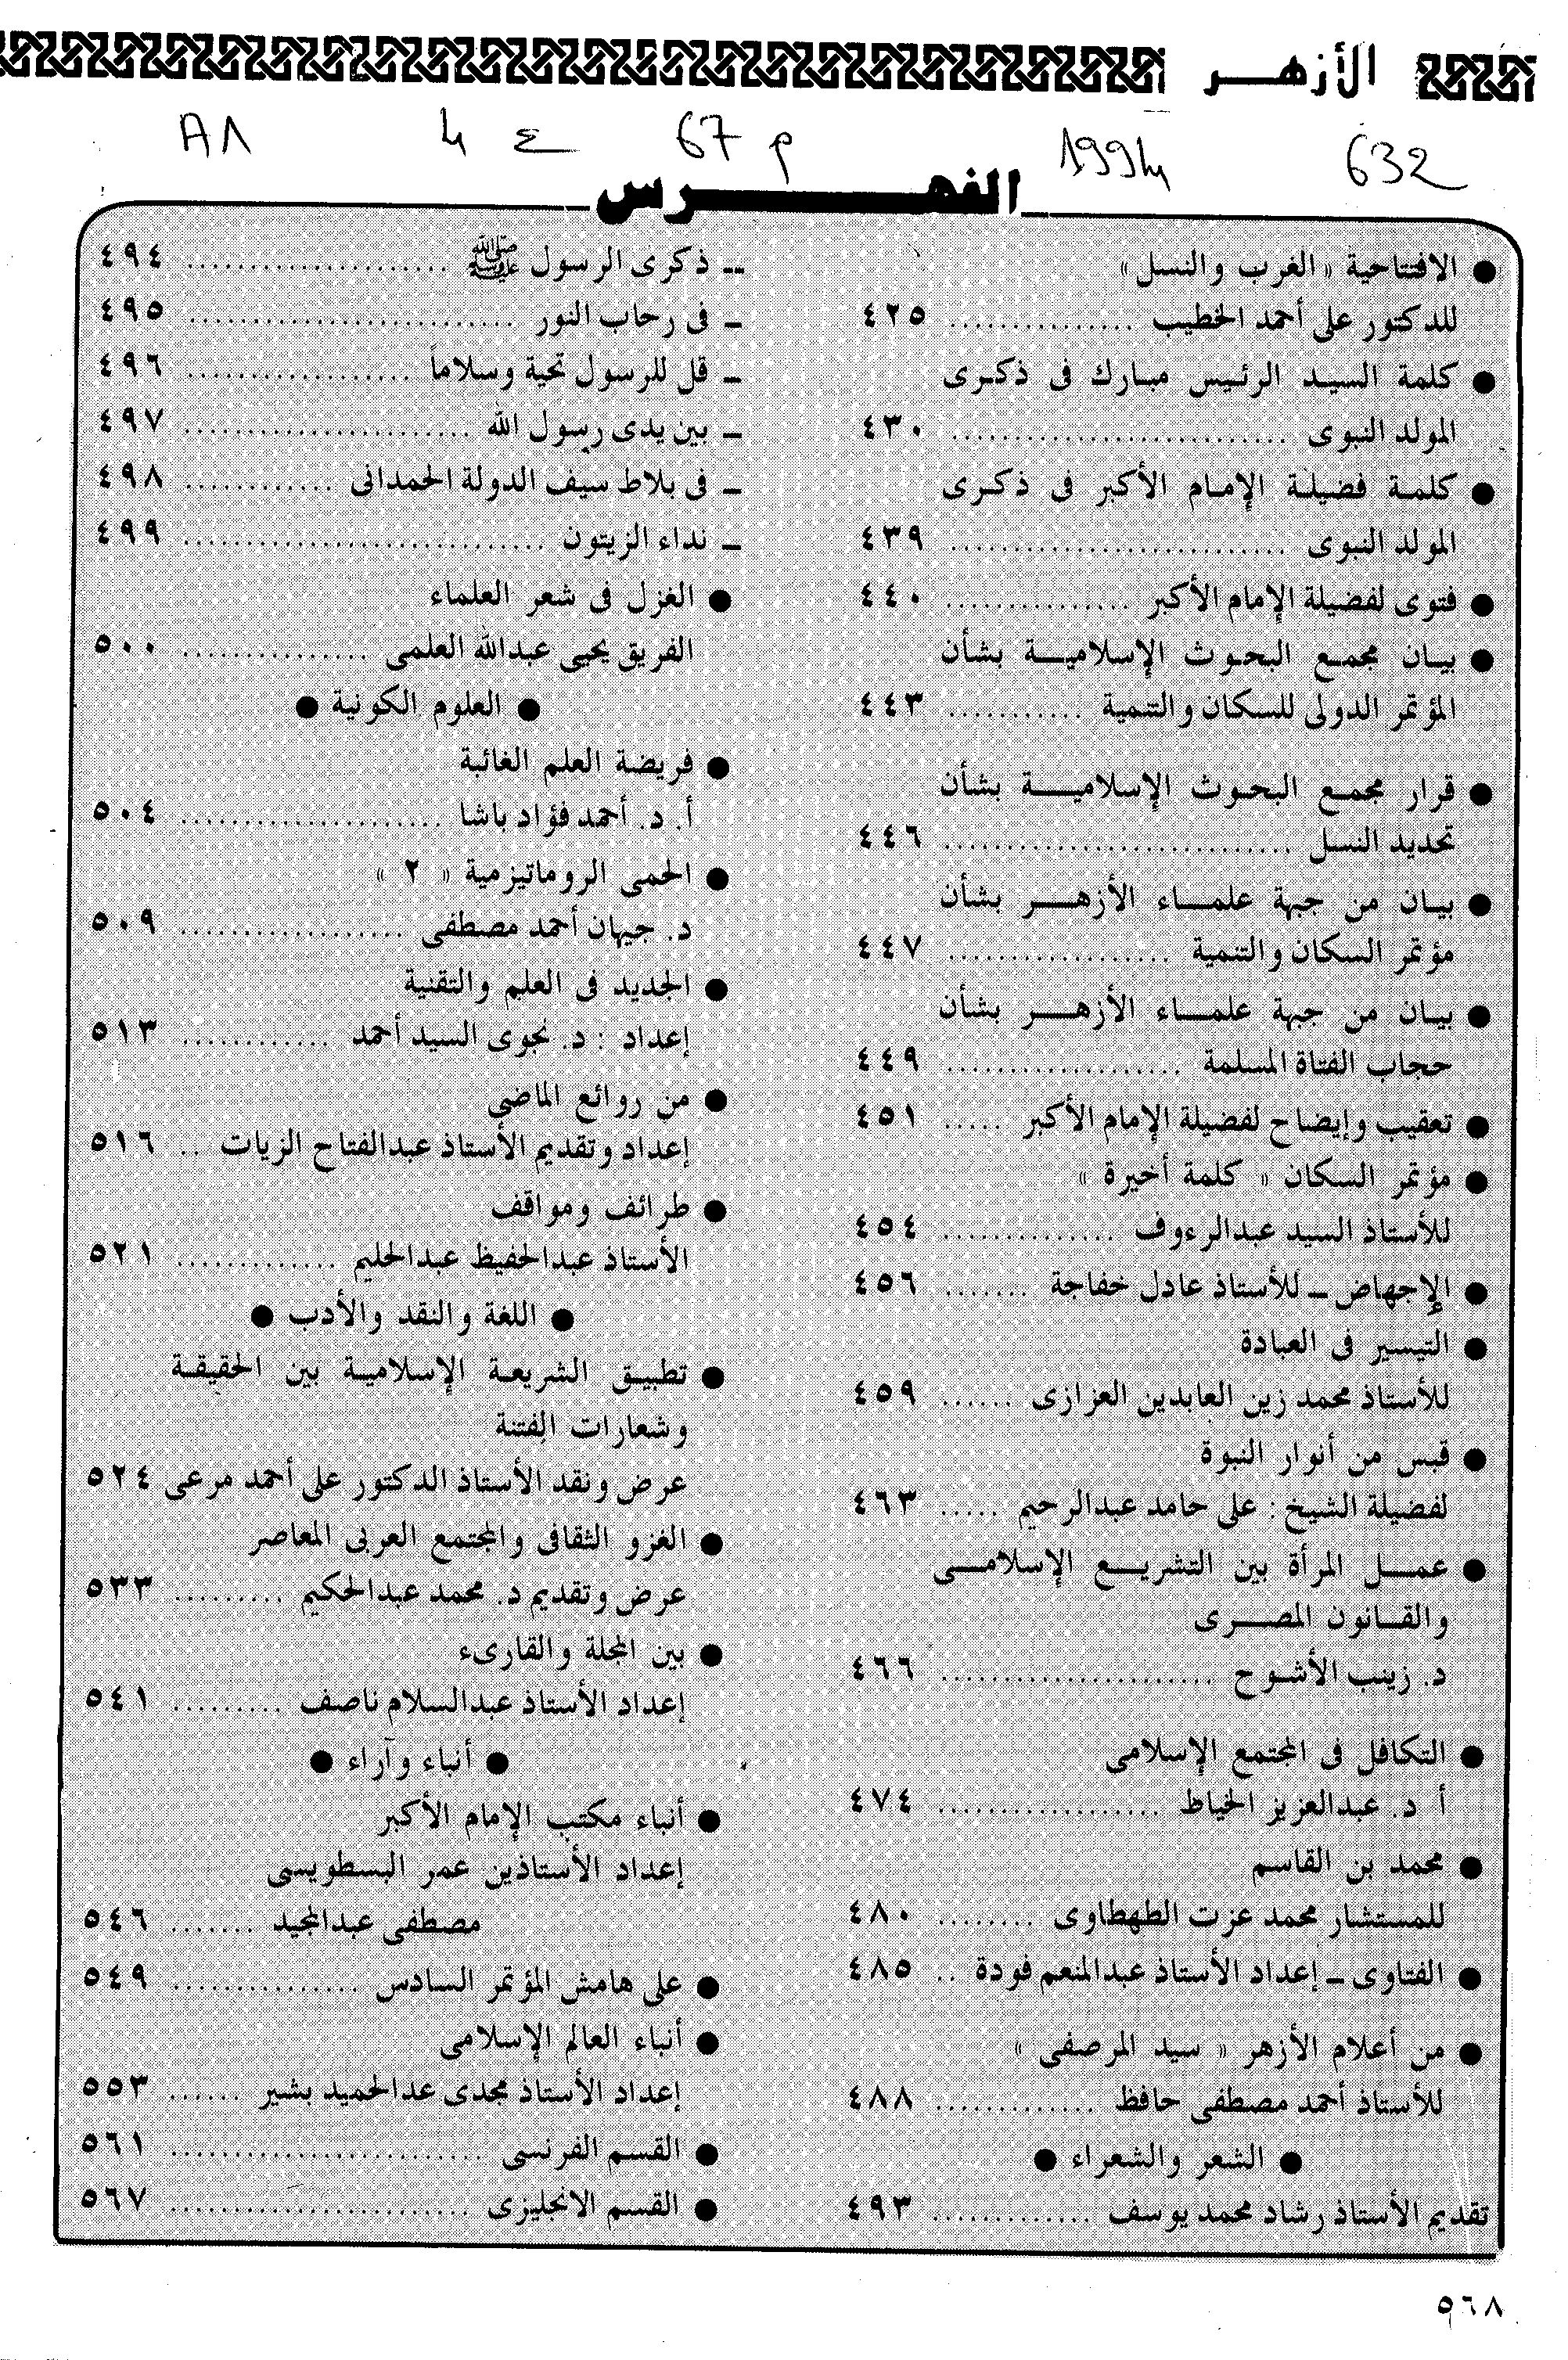 الأزهــر
632
1994
م 67
ع 4
A1
الفهــرس
● الافتتاحية «الغرب والنسل»
للدكتور على أحمد الخطيب ................ ٤٢٥
● كلمة السيد الرئيس مبارك فى ذكرى
المولد النبوى ................ ٤٣٠
● كلمة فضيلة الإمام الأكبر فى ذكرى
المولد النبوى ................ ٤٣٩
● فتوى لفضيلة الإمام الأكبر ................ ٤٤٠
● بيان مجمع البحوث الإسلامية بشأن
المؤتمر الدولى للسكان والتنمية ............ ٤٤٣
● قرار مجمع البحوث الإسلامية بشأن
تحديد النسل ................ ٤٤٦
● بيان من جبهة علماء الأزهر بشأن
مؤتمر السكان والتنمية ................ ٤٤٧
● بيان من جبهة علماء الأزهر بشأن
حجاب الفتاة المسلمة ................ ٤٤٩
● تعقيب وإيضاح لفضيلة الإمام الأكبر ..... ٤٥١
● مؤتمر السكان « كلمة أخيرة »
للأستاذ السيد عبدالرءوف ............ ٤٥٤
● الإجهاض ــ للأستاذ عادل خفاجة ....... ٤٥٦
● التيسير فى العبادة
للأستاذ محمد زين العابدين العزازى ...... ٤٥٩
● قبس من أنوار النبوة
لفضيلة الشيخ : على حامد عبدالرحيم ..... ٤٦٣
● عمل المرأة بين التشريع الإسلامى
والقانون المصرى
د. زينب الأشوح ................ ٤٦٦
● التكافل فى المجتمع الإسلامى
أ د. عبدالعزيز الخياط ................ ٤٧٤
● محمد بن القاسم
للمستشار محمد عزت الطهطاوى ........ ٤٨٠
● الفتاوى ــ إعداد الأستاذ عبدالمنعم فودة .. ٤٨٥
● من أعلام الأزهر « سيد المرصفى »
للأستاذ أحمد مصطفى حافظ ............ ٤٨٨
● الشعر والشعراء ●
تقديم الأستاذ رشاد محمد يوسف ............ ٤٩٣
ــ ذكرى الرسول ﷺ ................ ٤٩٤
ــ فى رحاب النور ................ ٤٩٥
ــ قل للرسول تحية وسلاماً ................ ٤٩٦
ــ بين يدى رسول الله ................ ٤٩٧
ــ فى بلاط سيف الدولة الحمدانى ............ ٤٩٨
ــ نداء الزيتون ................ ٤٩٩
● الغزل فى شعر العلماء
الفريق يحيى عبدالله العلمى ............ ٥٠٠
● العلوم الكونية ●
● فريضة العلم الغائبة
أ. د. أحمد فؤاد باشا ................ ٥٠٤
● الحمى الروماتيزمية « ٢ »
د. جيهان أحمد مصطفى ................ ٥٠٩
● الجديد فى العلم والتقنية
إعداد : د. نجوى السيد أحمد ............ ٥١٣
● من روائع الماضى
إعداد وتقديم الأستاذ عبدالفتاح الزيات .. ٥١٦
● طرائف ومواقف
الأستاذ عبدالحفيظ عبدالحليم ............ ٥٢١
● اللغة والنقد والأدب ●
● تطبيق الشريعة الإسلامية بين الحقيقة
وشعارات الفتنة
عرض ونقد الأستاذ الدكتور على أحمد مرعى ٥٢٤
● الغزو الثقافى والمجتمع العربى المعاصر
عرض وتقديم د. محمد عبدالحكيم ......... ٥٣٣
● بين المجلة والقارىء
إعداد الأستاذ عبدالسلام ناصف ......... ٥٤١
● أنباء وآراء ●
● أنباء مكتب الإمام الأكبر
إعداد الأستاذين عمر البسطويسى
مصطفى عبدالمجيد ....... ٥٤٦
● على هامش المؤتمر السادس ............ ٥٤٩
● أنباء العالم الإسلامى
إعداد الأستاذ مجدى عدالحميد بشير ...... ٥٥٣
● القسم الفرنسى ................ ٥٦١
● القسم الانجليزى ................ ٥٦٧
٥٦٨